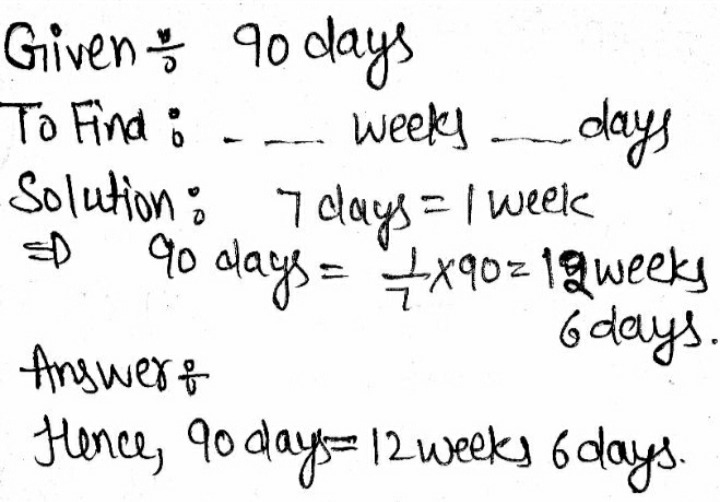 Given÷ 90 days
To Find: - - — weeks — days
Solution: 7 days = 1 week
⇒ 90 days = 1/7 × 90 = 12 weeks
6 days.
Answer÷
Hence, 90 days = 12 weeks 6 days.